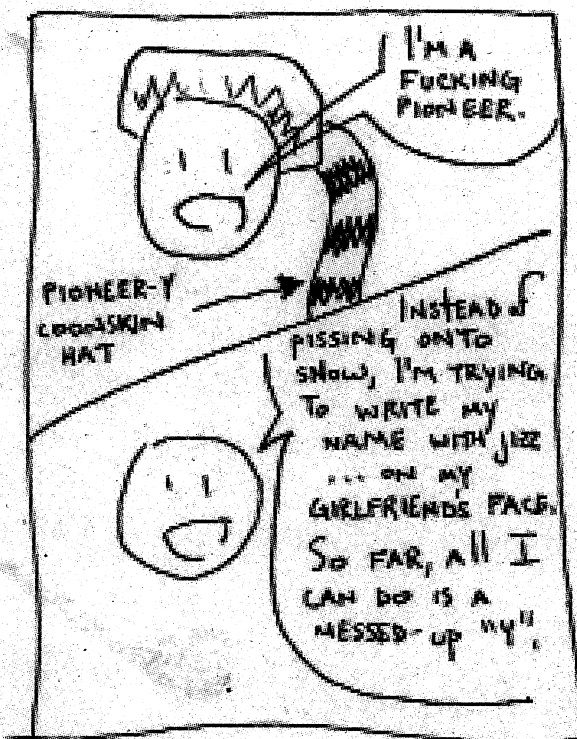 I'M A
FUCKING
PIONEER.
PIONEER-Y
COONSKIN
HAT
INSTEAD OF
PISSING ONTO
SNOW, I'M TRYING
TO WRITE MY
NAME WITH JIZZ
... ON MY
GIRLFRIEND'S FACE.
SO FAR, All I
CAN DO IS A
MESSED-UP "Y".